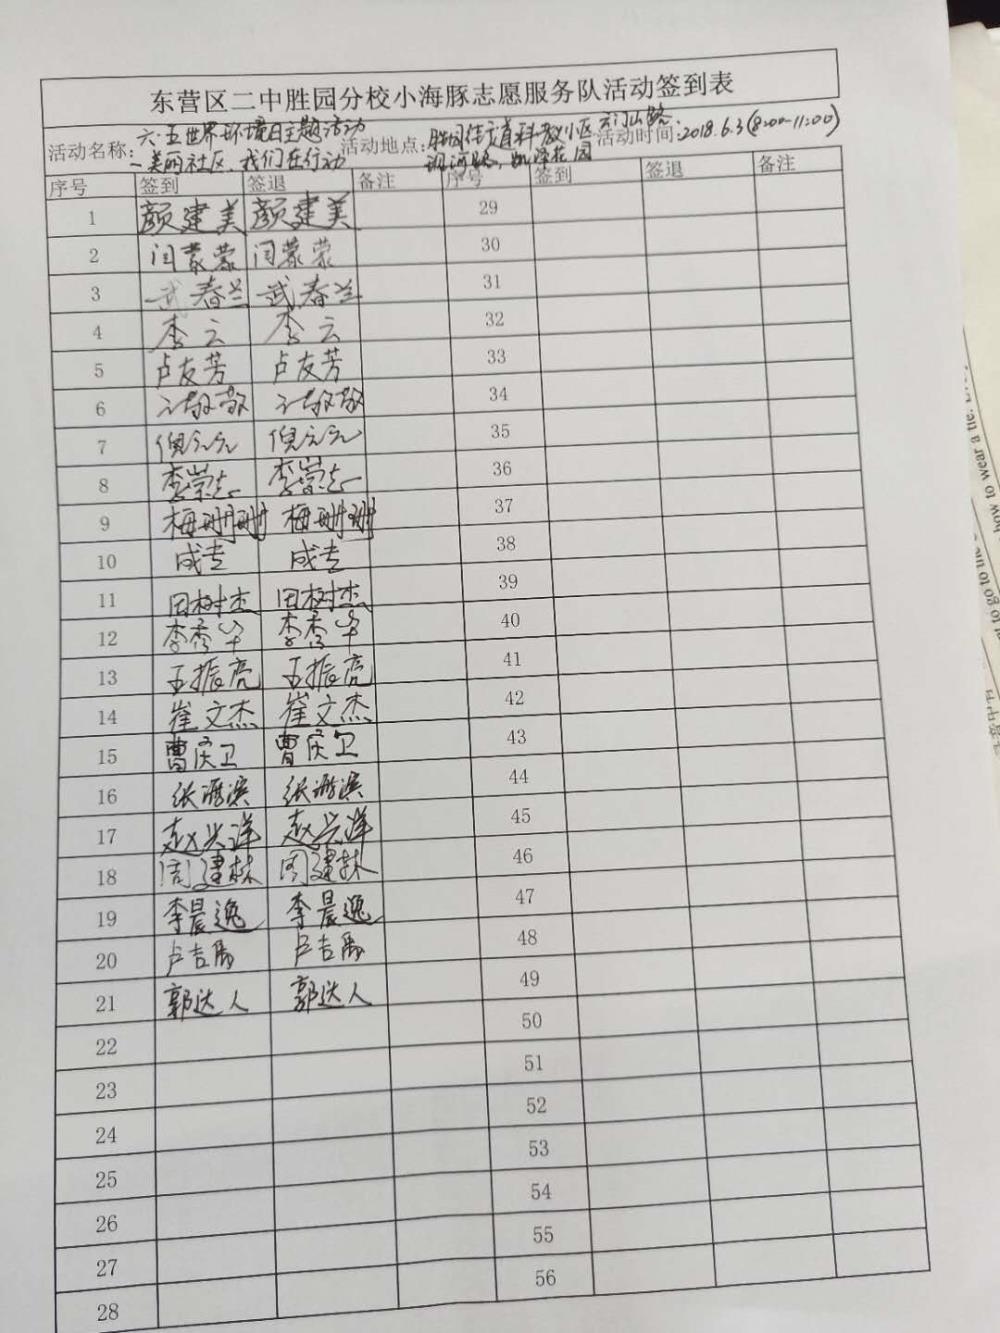 东营区二中胜园分校小海豚志愿服务队活动签到表
活动名称: 六·五世界环境日主题活动
－美丽社区、我们在行动
活动地点: 胜园街道科教小区 云门山路
凯泽花园
活动时间: 2018.6.3(8:00-11:00)
序号 签到 签退 备注 序号 签到 签退 备注
1 颜建美 颜建美 29
2 闫蒙蒙 闫蒙蒙 30
3 武春兰 武春兰 31
4 李云 李云 32
5 卢友芳 卢友芳 33
6 34
7 倪元元 倪元元 35
8 李崇志 李崇志 36
9 梅珊珊 梅珊珊 37
10 成专 成专 38
11 田树杰 田树杰 39
12 李秀华 李秀华 40
13 王振亮 王振亮 41
14 崔文杰 崔文杰 42
15 曹庆卫 曹庆卫 43
16 张 滨 张 滨 44
17 赵兴洋 赵兴洋 45
18 周建林 周建林 46
19 李晨逸 李晨逸 47
20 卢吉禹 卢吉禹 48
21 郭达人 郭达人 49
22 50
23 51
24 52
25 53
26 54
27 55
28 56
how to wear a tie.